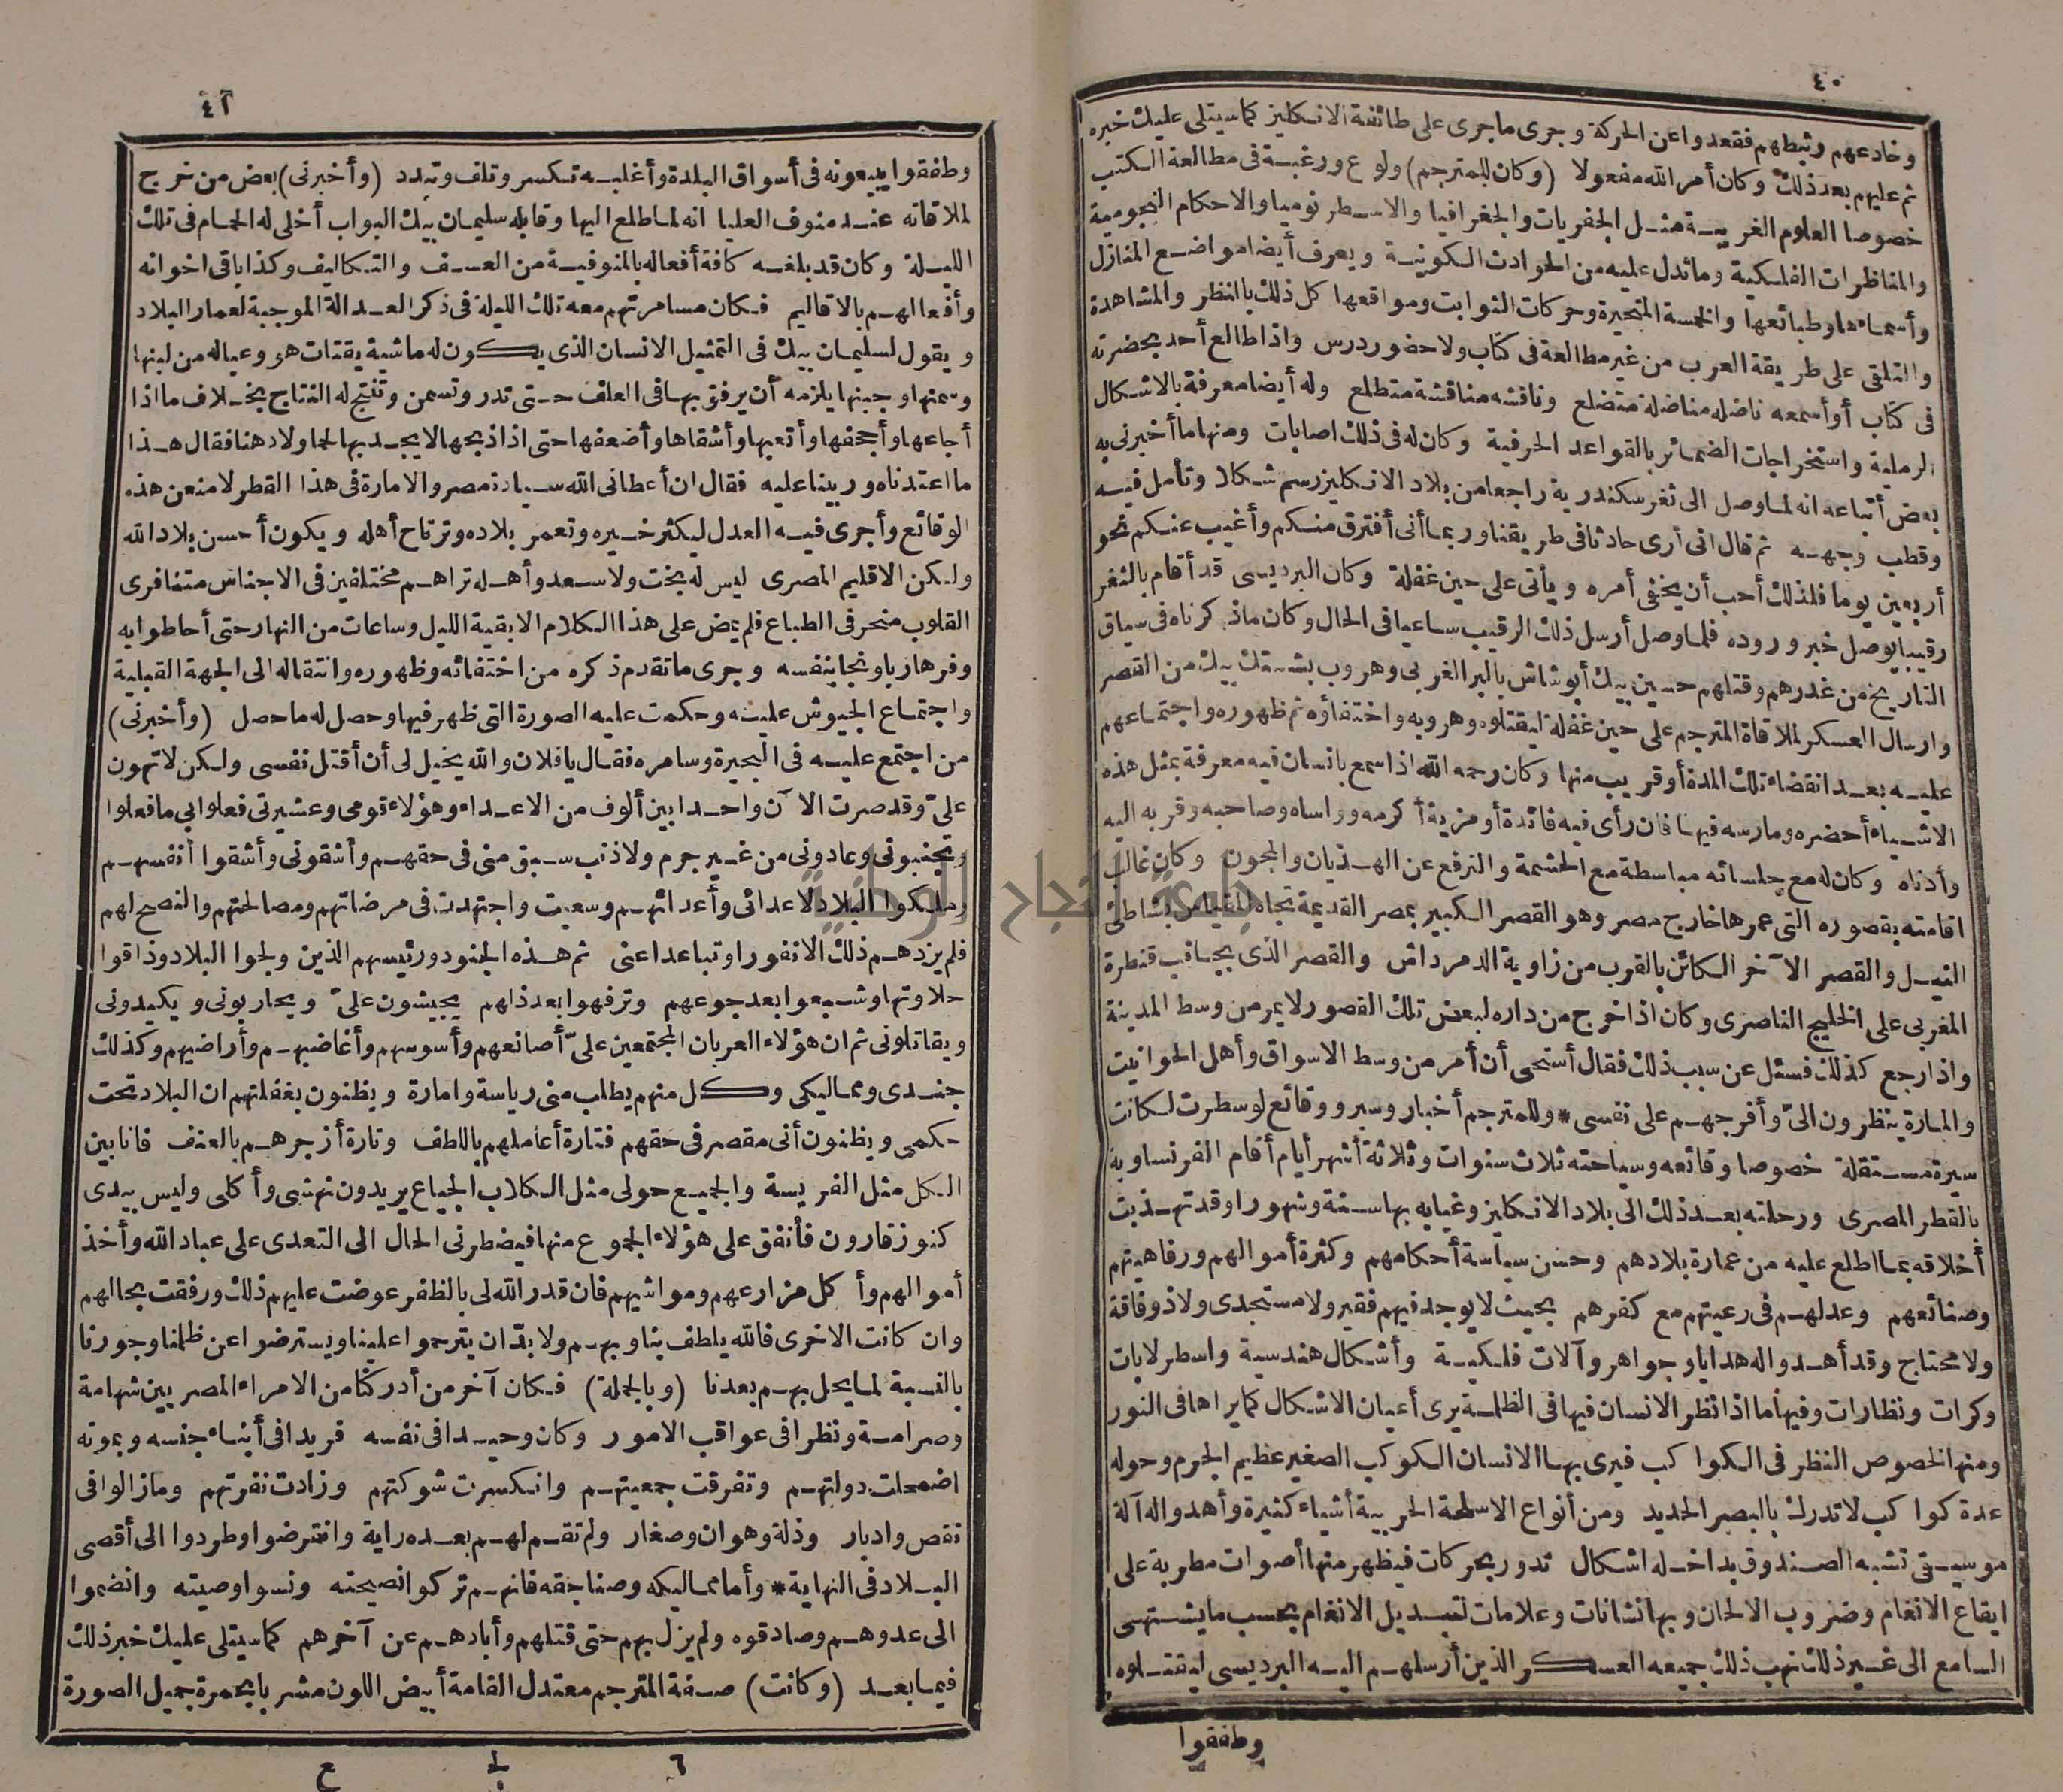 ٤٠
وخادعهم وثبطهم فقعدوا عن الحركة وجرى ما جرى على طائفة الانكليز كما سيتلى عليك خبره
ثم عليهم بعد ذلك وكان أمر الله مفعولا (وكان للمترجم) ولوع ورغبة فى مطالعة الكتب
خصوصا العلوم الغريبة مثل الجفريات والجغرافيا والاسطرنوميا والاحكام النجومية
والمناظرات الفلكية وما تدل عليه من الحوادث الكونية ويعرف أيضا مواضع المنازل
وأسماءها وطبائعها والخمسة المتحيرة وحركات الثوابت ومواقعها كل ذلك بالنظر والمشاهدة
والتلقى على طريقة العرب من غير مطالعة فى كتاب ولا حضور درس واذا طالع أحد بحضرته
فى كتاب أو أسمعه ناضله مناضلة متضلع وناقشه مناقشة متطلع وله أيضا معرفة بالاشكال
الرملية واستخراجات الضمائر بالقواعد الحرفية وكان له فى ذلك اصابات ومنها ما أخبرنى به
بعض أتباعه انه لما وصل الى ثغر سكندرية راجعا من بلاد الانكليز رسم شكلا وتأمل فيه
وقطب وجهه ثم قال انى أرى حادثا فى طريقنا وربما أنى أفترق منكم وأغيب عنكم نحو
أربعين يوما فلذلك أحب أن يخفى أمره ويأتى على حين غفلة وكان البرديسى قد أقام بالثغر
رقيبا يوصل خبر وروده فلما وصل أرسل ذلك الرقيب ساعيا فى الحال وكان ما ذكرناه فى سياق
التاريخ من غدرهم وقتلهم حسين بيك أبو شاش بالبر الغربى وهروب بشتك بيك من القصر
وارسال العسكر لملاقاة المترجم على حين غفلة ليقتلوه وهروبه واختفاؤه ثم ظهوره واجتماعهم
عليه بعد انقضاء تلك المدة أو قريب منها وكان رحمه الله اذا سمع بانسان فيه معرفة بمثل هذه
الاشياء أحضره ومارسه فيها فان رأى فيه فائدة أو مزية أكرمه وواساه وصاحبه وقربه اليه
وأدناه وكان له مع جلسائه مباسطة مع الحشمة والترفع عن الهذيان والمجون وكان غالب
اقامته بقصوره التى عمرها خارج مصر وهو القصر الكبير بمصر القديمة تجاه المقياس بشاطئ
النيل والقصر الآخر الكائن بالقرب من زاوية الدمرداش والقصر الذى بجانب قنطرة
المغربى على الخليج الناصرى وكان اذا خرج من داره لبعض تلك القصور لا يمر من وسط المدينة
واذا رجع كذلك فسئل عن سبب ذلك فقال أستحى أن أمر من وسط الاسواق وأهل الحوانيت
والمارة ينظرون الىّ وأفرجهم على نفسى * وللمترجم أخبار وسير ووقائع لو سطرت لكانت
سيرة مستقلة خصوصا وقائعه وسياحته ثلاث سنوات وثلاثة أشهر أيام أقام الفرنساوية
بالقطر المصرى ورحلته بعد ذلك الى بلاد الانكليز وغيابه بها سنة وشهورا وقد تهذبت
أخلاقه بما اطلع عليه من عمارة بلادهم وحسن سياسة أحكامهم وكثرة أموالهم ورفاهيتهم
وصنائعهم وعدلهم فى رعيتهم مع كفرهم بحيث لا يوجد فيهم فقير ولا مستجدى ولا ذو فاقة
ولا محتاج وقد أهدوا له هدايا وجواهر وآلات فلكية وأشكال هندسية واسطرلابات
وكرات ونظارات وفيها ما اذا نظر الانسان فيها فى الظلمة يرى أعيان الاشكال كما يراها فى النور
ومنها لخصوص النظر فى الكواكب فيرى بها الانسان الكوكب الصغير عظيم الجرم وحوله
عدة كواكب لا تدرك بالبصر الحديد ومن أنواع الاسلحة الحربية أشياء كثيرة وأهدوا له آلة
موسيقى تشبه الصندوق بداخله اشكال تدور بحركات فيظهر منها أصوات مطربة على
ايقاع الانغام وضروب الالحان وبها نشانات وعلامات لتبديل الانغام بحسب ما يشتهى
السامع الى غير ذلك نهب ذلك جميعه العسكر الذين أرسلهم اليه البرديسى ليقتلوه
وطفقوا
٤١
وطفقوا يبيعونه فى أسواق البلدة وأغلبه تكسر وتلف وتبدد (وأخبرنى) بعض من خرج
لملاقاته عند منوف العليا انه لما طلع اليها وقابله سليمان بيك البواب أخلى له الحمام فى تلك
الليلة وكان قد بلغه كافة أفعاله بالمنوفية من العسف والتكاليف وكذا باقى اخوانه
وأفعالهم بالاقاليم فكان مسامرتهم معه تلك الليلة فى ذكر العدالة الموجبة لعمار البلاد
ويقول لسليمان بيك فى التمثيل الانسان الذى يكون له ماشية يقتات هو وعياله من لبنها
وسمنها وجبنها يلزمه أن يرفق بها فى العلف حتى تدر وتسمن وتنتج له النتاج بخلاف ما اذا
أجاعها وأجحفها وأتعبها وأشقاها وأضعفها حتى اذا ذبحها لا يجد بها لحما ولا دهنا فقال هذا
ما اعتدناه وربينا عليه فقال ان أعطانى الله سيادة مصر والامارة فى هذا القطر لامنعن هذه
الوقائع وأجرى فيه العدل ليكثر خيره وتعمر بلاده وترتاح أهله ويكون أحسن بلاد الله
ولكن الاقليم المصرى ليس له بخت ولا سعد وأهله تراهم مختلفين فى الاجناس متنافرى
القلوب منحرفى الطباع فلم يمض على هذا الكلام الا بقية الليل وساعات من النهار حتى أحاطوا به
وفر هاربا ونجا بنفسه وجرى ما تقدم ذكره من اختفائه وظهوره وانتقاله الى الجهة القبلية
واجتماع الجيوش عليه وحكمت عليه الصورة التى ظهر فيها وحصل له ما حصل (وأخبرنى)
من اجتمع عليه فى البحيرة وسامره فقال يا فلان والله يخيل لى أن أقتل نفسى ولكن لا تهون
علىّ وقد صرت الآن واحدا بين ألوف من الاعداء وهؤلاء قومى وعشيرتى فعلوا بى ما فعلوا
وتجنبونى وعادونى من غير جرم ولا ذنب سبق منى فى حقهم وأشقونى وأشقوا أنفسهم
وملكوا البلاد لاعدائى وأعدائهم وسعيت واجتهدت فى مرضاتهم ومصالحتهم والنصح لهم
فلم يزدهم ذلك الا نفورا وتباعدا عنى ثم هذه الجنود ورئيسهم الذين ولجوا البلاد وذاقوا
حلاوتها وشبعوا بعد جوعهم وترفهوا بعد ذلهم يجيشون علىّ ويحاربونى ويكيدونى
ويقاتلونى ثم ان هؤلاء العربان المجتمعين علىّ أصانعهم وأسوسهم وأغاضبهم وأراضيهم وكذلك
جندى ومماليكى وكل منهم يطلب منى رياسة وامارة ويظنون بغفلتهم ان البلاد تحت
حكمى ويظنون أنى مقصر فى حقهم فتارة أعاملهم باللطف وتارة أزجرهم بالعنف فانا بين
الكل مثل الفريسة والجميع حولى مثل الكلاب الجياع يريدون نهشى وأكلى وليس بيدى
كنوز قارون فأنفق على هؤلاء الجموع منها فيضطرنى الحال الى التعدى على عباد الله وأخذ
أموالهم وأكل مزارعهم ومواشيهم فان قدر الله لى بالظفر عوضت عليهم ذلك ورفقت بحالهم
وان كانت الاخرى فالله يلطف بنا وبهم ولا بدّ ان يترحموا علينا ويسترضوا عن ظلمنا وجورنا
بالنسبة لما يحل بهم بعدنا (وبالجملة) فكان آخر من أدركنا من الامراء المصريين شهامة
وصرامة ونظرا فى عواقب الامور وكان وحيدا فى نفسه فريدا فى أبناء جنسه وبموته
اضمحلت دولتهم وتفرقت جمعيتهم وانكسرت شوكتهم وزادت نفرتهم وما زالوا فى
نقص وادبار وذلة وهوان وصغار ولم تقم لهم بعده راية وانقرضوا وطردوا الى أقصى
البلاد فى النهاية * وأما مماليكه وصناجقه فانهم تركوا نصيحته ونسوا وصيته وانضموا
الى عدوهم وصادقوه ولم يزل بهم حتى قتلهم وأبادهم عن آخرهم كما سيتلى عليك خبر ذلك
فيما بعد (وكانت) صفة المترجم معتدل القامة أبيض اللون مشربا بحمرة جميل الصورة
٦ ع
جامعة النجاح الوطنية